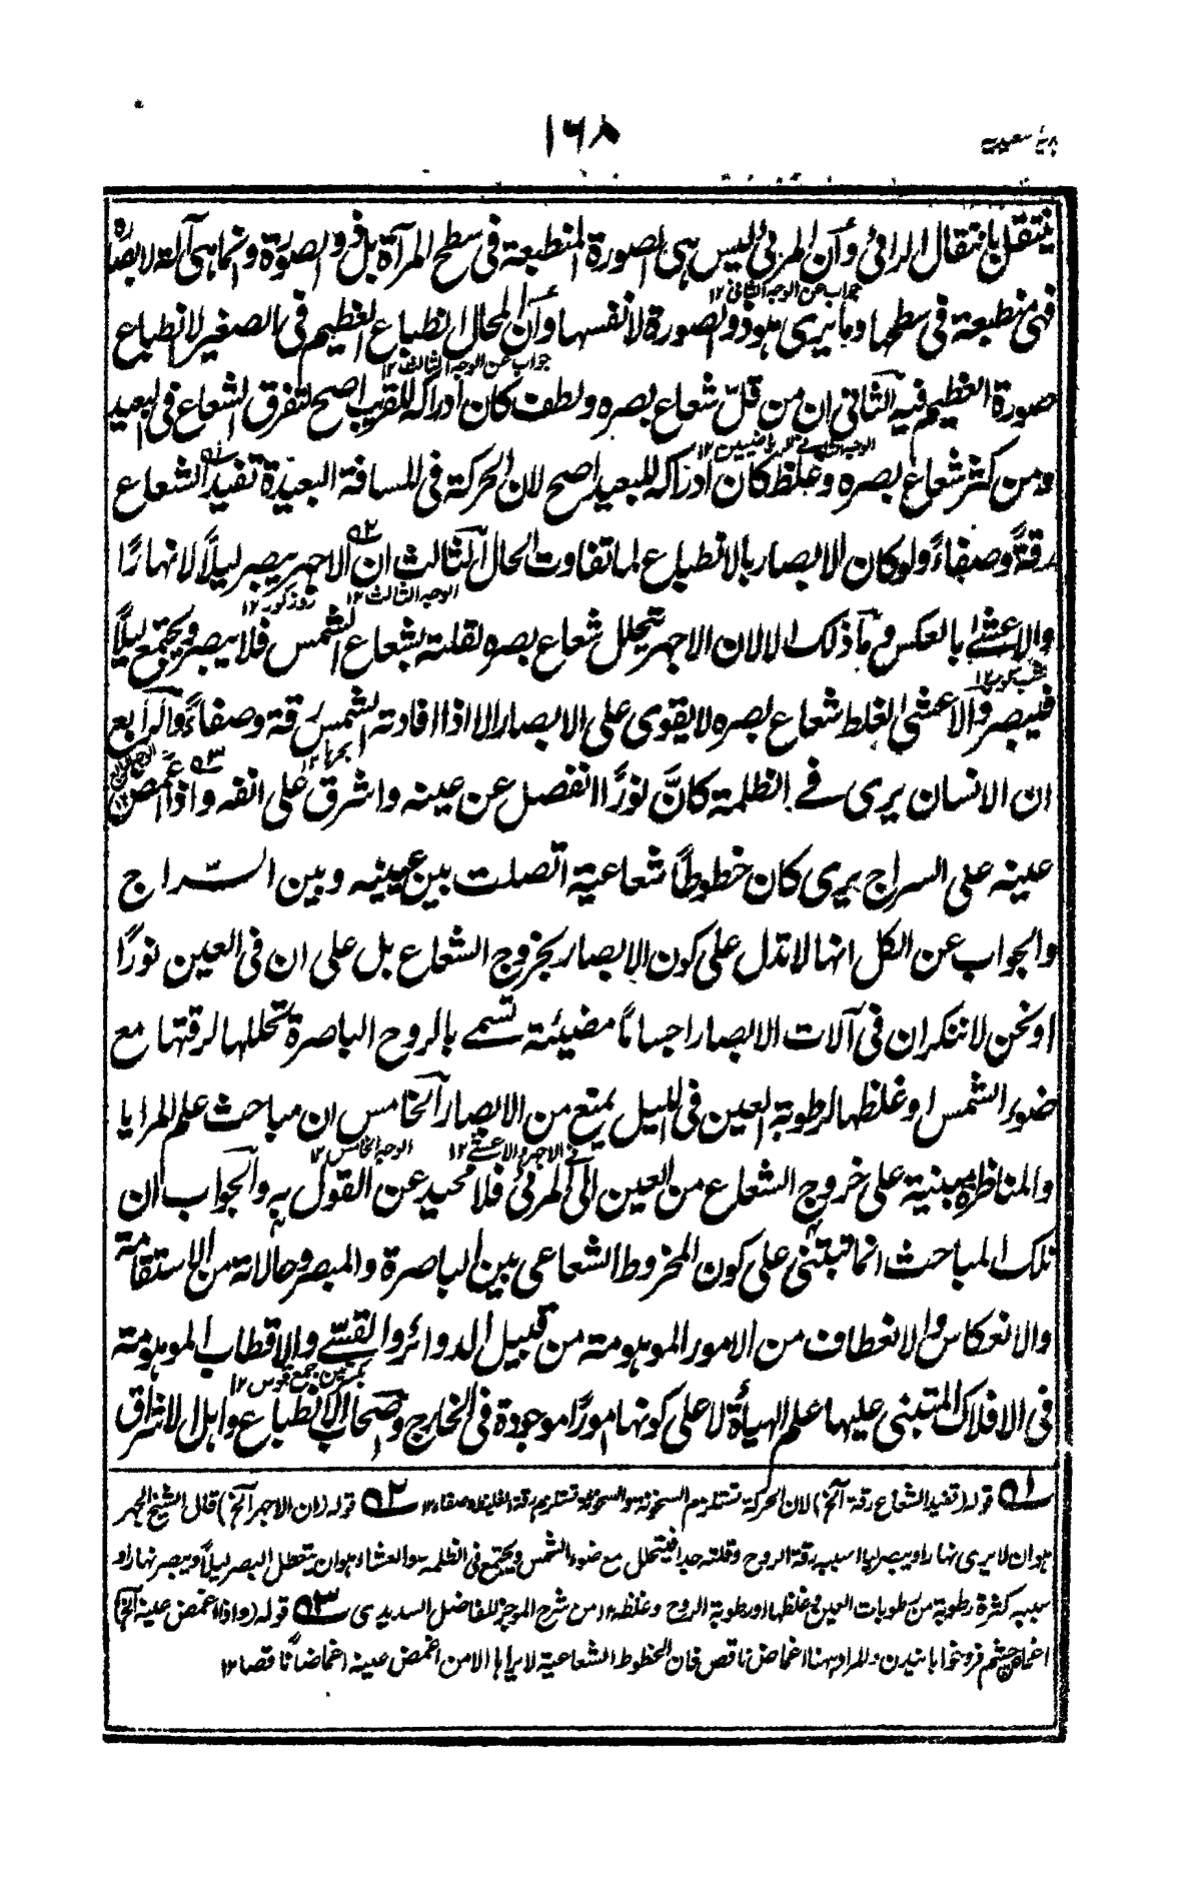 ١٦٨
ہدیۂ سعیدیہ
ينتقل بانتقال الرائي وأن المرئي ليس هى الصورة المنطبعة فى سطح المرآة بل ذو الصورة وانما هى آلة لابصاره
جواب عن الوجه الثانى ١٢
فهى منطبعة فى سطحها وما يرى هو ذو الصورة لا نفسها وأن المحال انطباع العظيم فى الصغير لا انطباع
جواب عن الوجه الثالث ١٢
صورة العظيم فيه الثانى ان من قلّ شعاع بصره ولطف كان ادراكه للقريب اصح لتفرق الشعاع فى البعيد
ومن كثر شعاع بصره وغلظ كان ادراكه للبعيد اصح لان الحركة فى المسافة البعيدة تفيد ١ه الشعاع
رقةً وصفاءً ولو كان الابصار بالانطباع لما تفاوت الحال الثالث ان ٢ه الاجهر يبصر ليلًا لا نهارًا
الوجه الثالث ١٢ روز كور ١٢
والاعشى بالعكس وما ذلك الا لان الاجهر يتحلل شعاع بصره لقلته بشعاع الشمس فلا يبصر ويجتمع ليلًا
شب كور ١٢
فيبصر والاعشى لغلظ شعاع بصره لا يقوى على الابصار الا اذا افادته الشمس رقة وصفاءً والرابع
الوجه الرابع ١٢
ان الانسان يرى فى الظلمة كانَّ نورًا انفصل عن عينه واشرق على انفه واذا ٣ه غمض
عينه على السراج يرى كان خطوطًا شعاعية اتصلت بين عينيه وبين السّراج
والجواب عن الكل انها لا تدل على كون الابصار بخروج الشعاع بل على ان فى العين نورًا
او نحن لا ننكر ان فى آلات الابصار اجسامًا مضيئة تسمى بالروح الباصرة تتحللها لرقتها مع
ضوء الشمس او غلظها لرطوبة العين فى الليل يمنع من الابصار الخامس ان مباحث علم المرايا
فى الاجهر والاعشى ١٢ الوجه الخامس ١٢
والمناظرة مبنية على خروج الشعاع من العين الى المرئى فلا محيد عن القول به والجواب ان
تلك المباحث انما تبتنى على كون المخروط الشعاعى بين الباصرة والمبصر وحالاته من الاستقامة
والانعكاس والانعطاف من الامور الموهومة من قبيل الدوائر والقسى والاقطاب الموهومة
جمع قوس ١٢
فى الافلاك المتبنى عليها علم الهيأة لا على كونها امورًا موجودة فى الخارج واصحاب الانطباع واهل الاشراق
١ه قوله (تفيد الشعاع رقة آلخ) لان الحركة تستلزم السخونة والسخونة تستلزم رقة الغليظ وصفاءه ١٢ ٢ه قوله (ان الاجهر آلخ) قال الشيخ الجهر
هو ان لا يرى نهارا ويبصر ليلا سببه رقة الروح وقلته جدا فيتحلل مع ضوء الشمس ويجتمع فى الظلمة والعشاء هو ان يتعطل البصر ليلًا ويبصر نهارا و
سببه كثرة رطوبة من رطوبات العين وغلظها او رطوبة الروح وغلظه ١٢ من شرح الموجز للفاضل السديدى ٣ه قوله (واذا غمض عينه آلخ)
اغماض چشم فرو خوابانيدن والمراد ههنا اغماض ناقص فان الخطوط الشعاعية لا يراها الا من اغمض عينه اغماضًا ناقصا ١٢